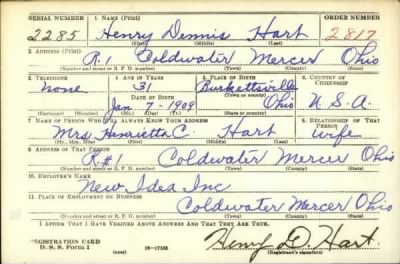 SERIAL NUMBER 1. NAME (Print) ORDER NUMBER
2285 Henry Dennis Hart 2817
(First) (Middle) (Last)
2. ADDRESS (Print)
R.1 Coldwater Mercer Ohio
(Number and street or R. F. D. number) (Town) (County) (State)
3. TELEPHONE 4. AGE IN YEARS 5. PLACE OF BIRTH 6. COUNTRY OF CITIZENSHIP
None 31 Burkettsville
DATE OF BIRTH (Town or county)
Jan 7-1909 Ohio U.S.A.
(Mo.) (Day) (Yr.) (State or country)
7. NAME OF PERSON WHO WILL ALWAYS KNOW YOUR ADDRESS 8. RELATIONSHIP OF THAT PERSON
Mrs Henrietta C. Hart wife
(Mr., Mrs., Miss) (First) (Middle) (Last)
9. ADDRESS OF THAT PERSON
R.#1 Coldwater Mercer Ohio
(Number and street or R. F. D. number) (Town) (County) (State)
10. EMPLOYER'S NAME
New Idea Inc
11. PLACE OF EMPLOYMENT OR BUSINESS
Coldwater Mercer Ohio
(Number and street or R. F. D. number) (Town) (County) (State)
I AFFIRM THAT I HAVE VERIFIED ABOVE ANSWERS AND THAT THEY ARE TRUE.
REGISTRATION CARD
D. S. S. Form 1 (over) 16-17105 Henry D. Hart.
(Registrant's signature)